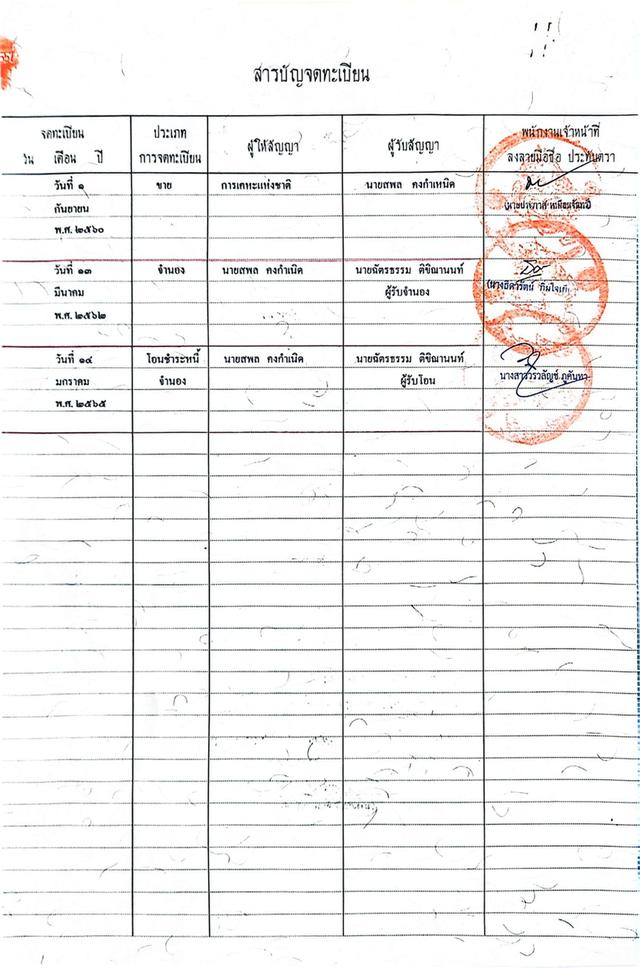 สารบัญจดทะเบียน
จดทะเบียน
วัน เดือน ปี
ประเภท
การจดทะเบียน
ผู้ให้สัญญา
ผู้รับสัญญา
พนักงานเจ้าหน้าที่
ลงลายมือชื่อ ประทับตรา
วันที่ ๑ ขาย การเคหะแห่งชาติ นายสพล คงกำเหนิด
กันยายน
พ.ศ. ๒๕๖๐
วันที่ ๑๓ จำนอง นายสพล คงกำเนิด นายฉัตรธรรม ดิชิณานนท์
มีนาคม ผู้รับจำนอง
พ.ศ. ๒๕๖๒
วันที่ ๑๔ โอนชำระหนี้ นายสพล คงกำเนิด นายฉัตรธรรม ดิชิณานนท์
มกราคม จำนอง ผู้รับโอน
พ.ศ. ๒๕๖๕